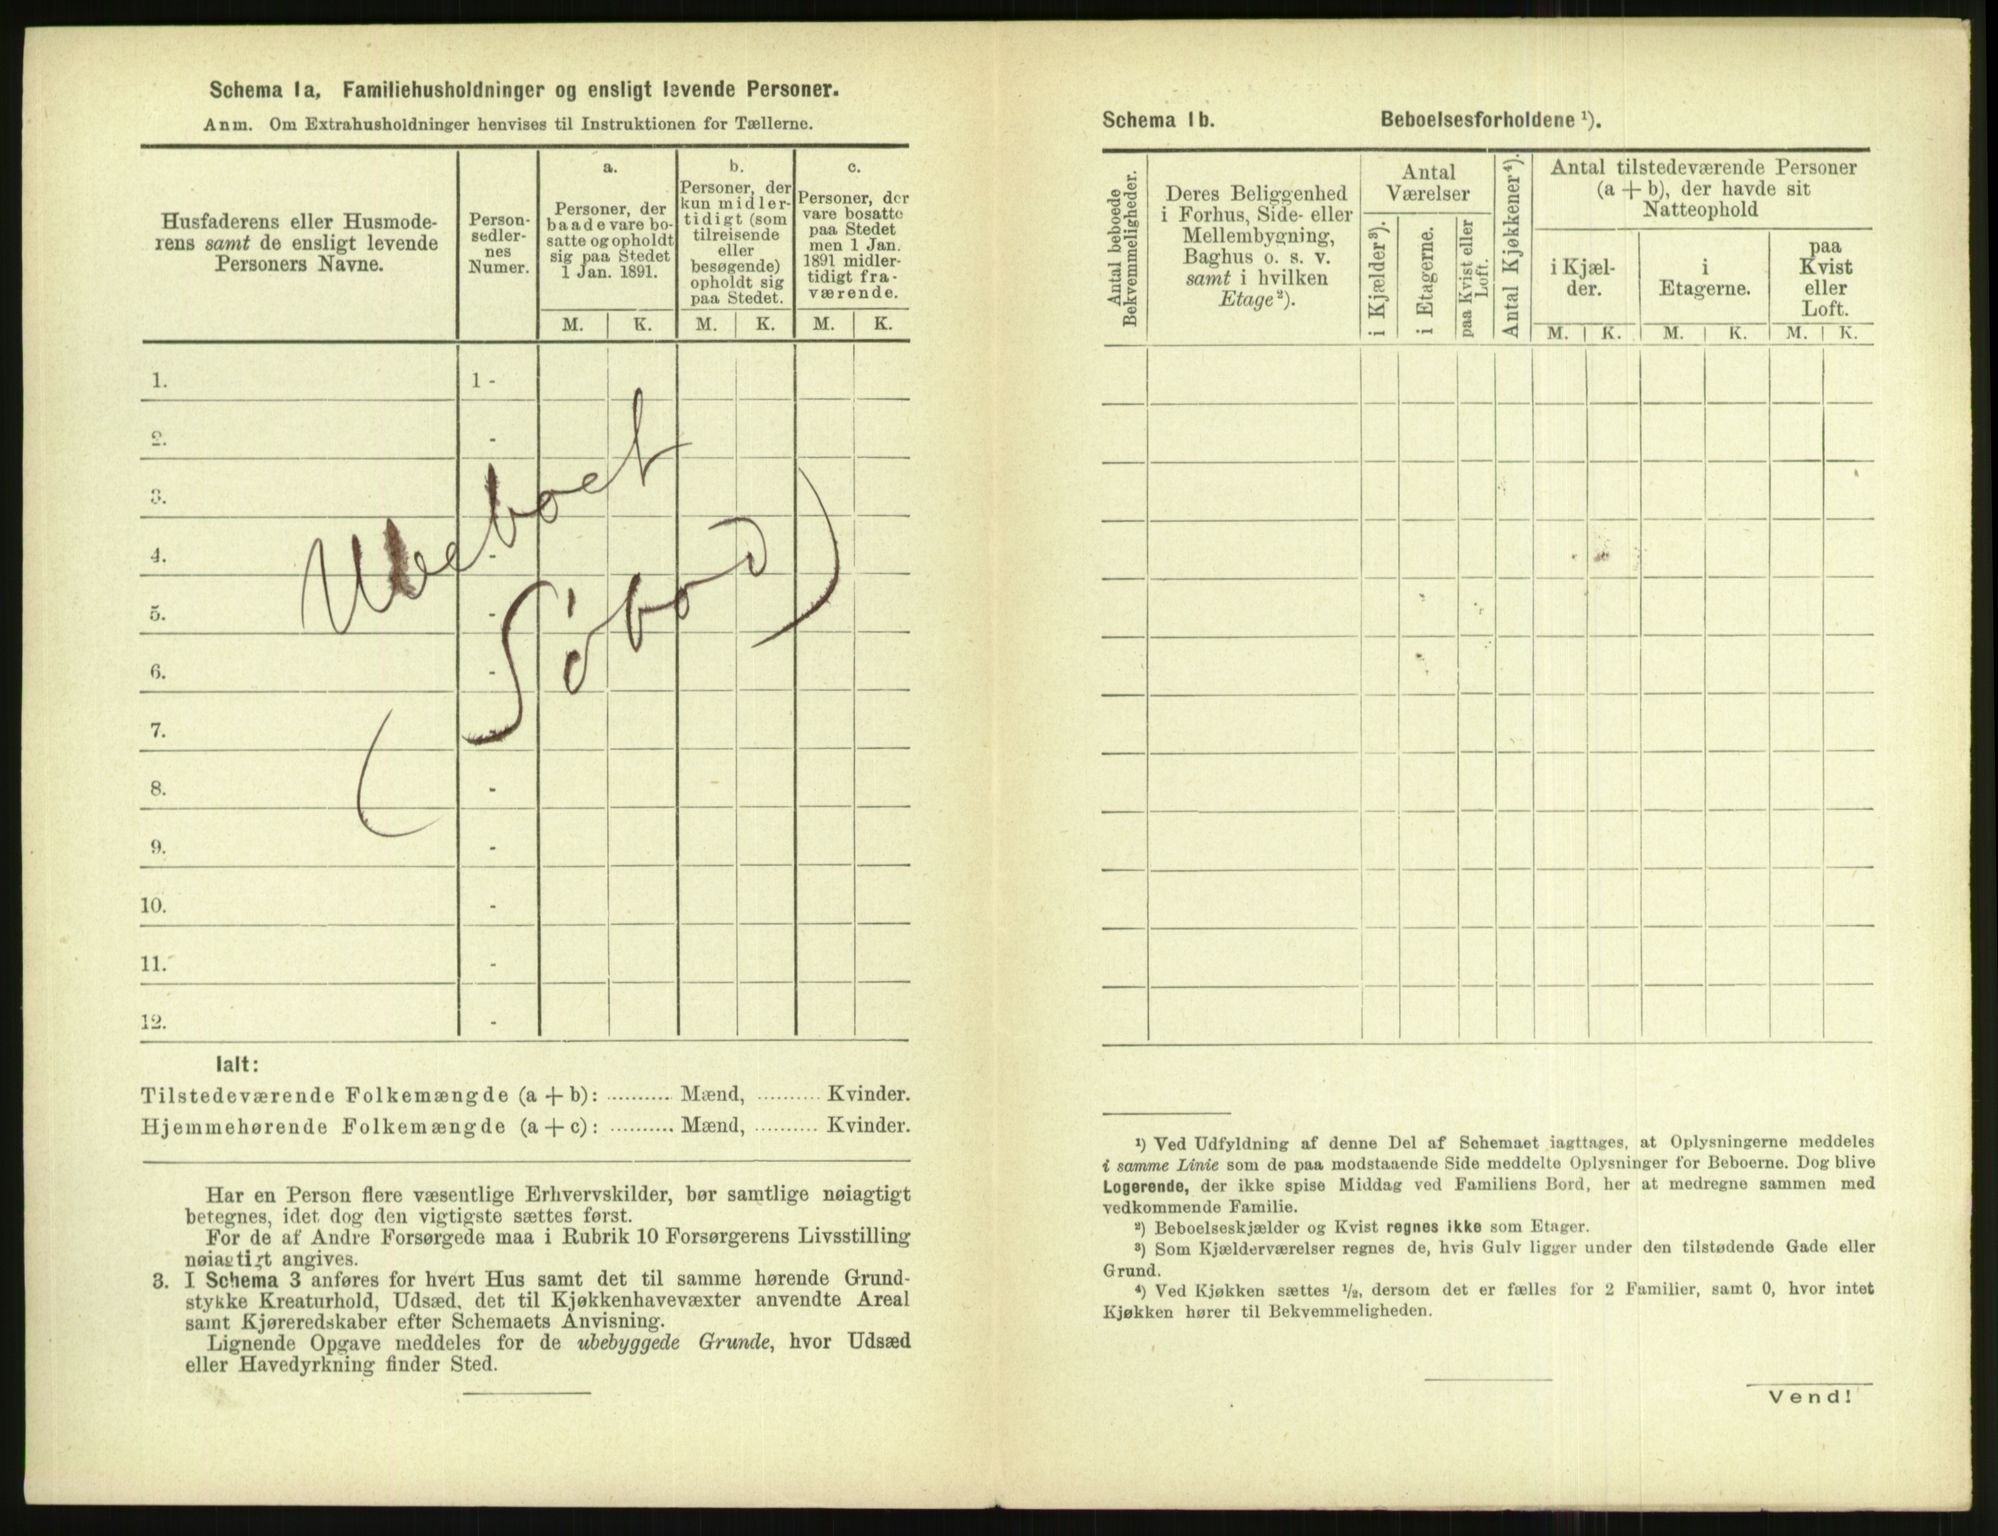 Schema 1a, Familiehusholdninger og ensligt levende Personer.
Anm. Om Extrahusholdninger henvises til Instruktionen for Tællerne.
Husfaderens eller Husmode-
rens samt de ensligt levende
Personers Navne.
Person-
sedler-
nes
Numer.
a.
Personer, der
baade vare bo-
satte og opholdt
sig paa Stedet
1 Jan. 1891.
b.
Personer, der
kun midler-
tidigt (som
tilreisende
eller
besøgende)
opholdt sig
paa Stedet.
c.
Personer, der
vare bosatte
paa Stedet
men 1 Jan.
1891 midler-
tidigt fra-
værende.
M. K. M. K. M. K.
1. 1 -
2. -
3. -
4. -
5. -
6. -
7. -
8. -
9. -
10. -
11. -
12. -
Ubeboet
(Söbod)
Ialt:
Tilstedeværende Folkemængde (a + b): .......... Mænd, .......... Kvinder.
Hjemmehørende Folkemængde (a + c): .......... Mænd, .......... Kvinder.
Har en Person flere væsentlige Erhvervskilder, bør samtlige nøiagtigt
betegnes, idet dog den vigtigste sættes først.
For de af Andre Forsørgede maa i Rubrik 10 Forsørgerens Livsstilling
nøiagtigt angives.
3. I Schema 3 anføres for hvert Hus samt det til samme hørende Grund-
stykke Kreaturhold, Udsæd, det til Kjøkkenhavevæxter anvendte Areal
samt Kjøreredskaber efter Schemaets Anvisning.
Lignende Opgave meddeles for de ubebyggede Grunde, hvor Udsæd
eller Havedyrkning finder Sted.
Schema 1b. Beboelsesforholdene ¹).
Antal beboede
Bekvemmeligheder.
Deres Beliggenhed
i Forhus, Side- eller
Mellembygning,
Baghus o. s. v.
samt i hvilken
Etage ²).
Antal
Værelser
i Kjælder ³).
i Etagerne.
paa Kvist eller
Loft.
Antal Kjøkkener ⁴).
Antal tilstedeværende Personer
(a + b), der havde sit
Natteophold
i Kjæl-
der.
i
Etagerne.
paa
Kvist
eller
Loft.
M. K. M. K. M. K.
¹) Ved Udfyldning af denne Del af Schemaet iagttages, at Oplysningerne meddeles
i samme Linie som de paa modstaaende Side meddelte Oplysninger for Beboerne. Dog blive
Logerende, der ikke spise Middag ved Familiens Bord, her at medregne sammen med
vedkommende Familie.
²) Beboelseskjælder og Kvist regnes ikke som Etager.
³) Som Kjælderværelser regnes de, hvis Gulv ligger under den tilstødende Gade eller
Grund.
⁴) Ved Kjøkken sættes ½, dersom det er fælles for 2 Familier, samt 0, hvor intet
Kjøkken hører til Bekvemmeligheden.
Vend!